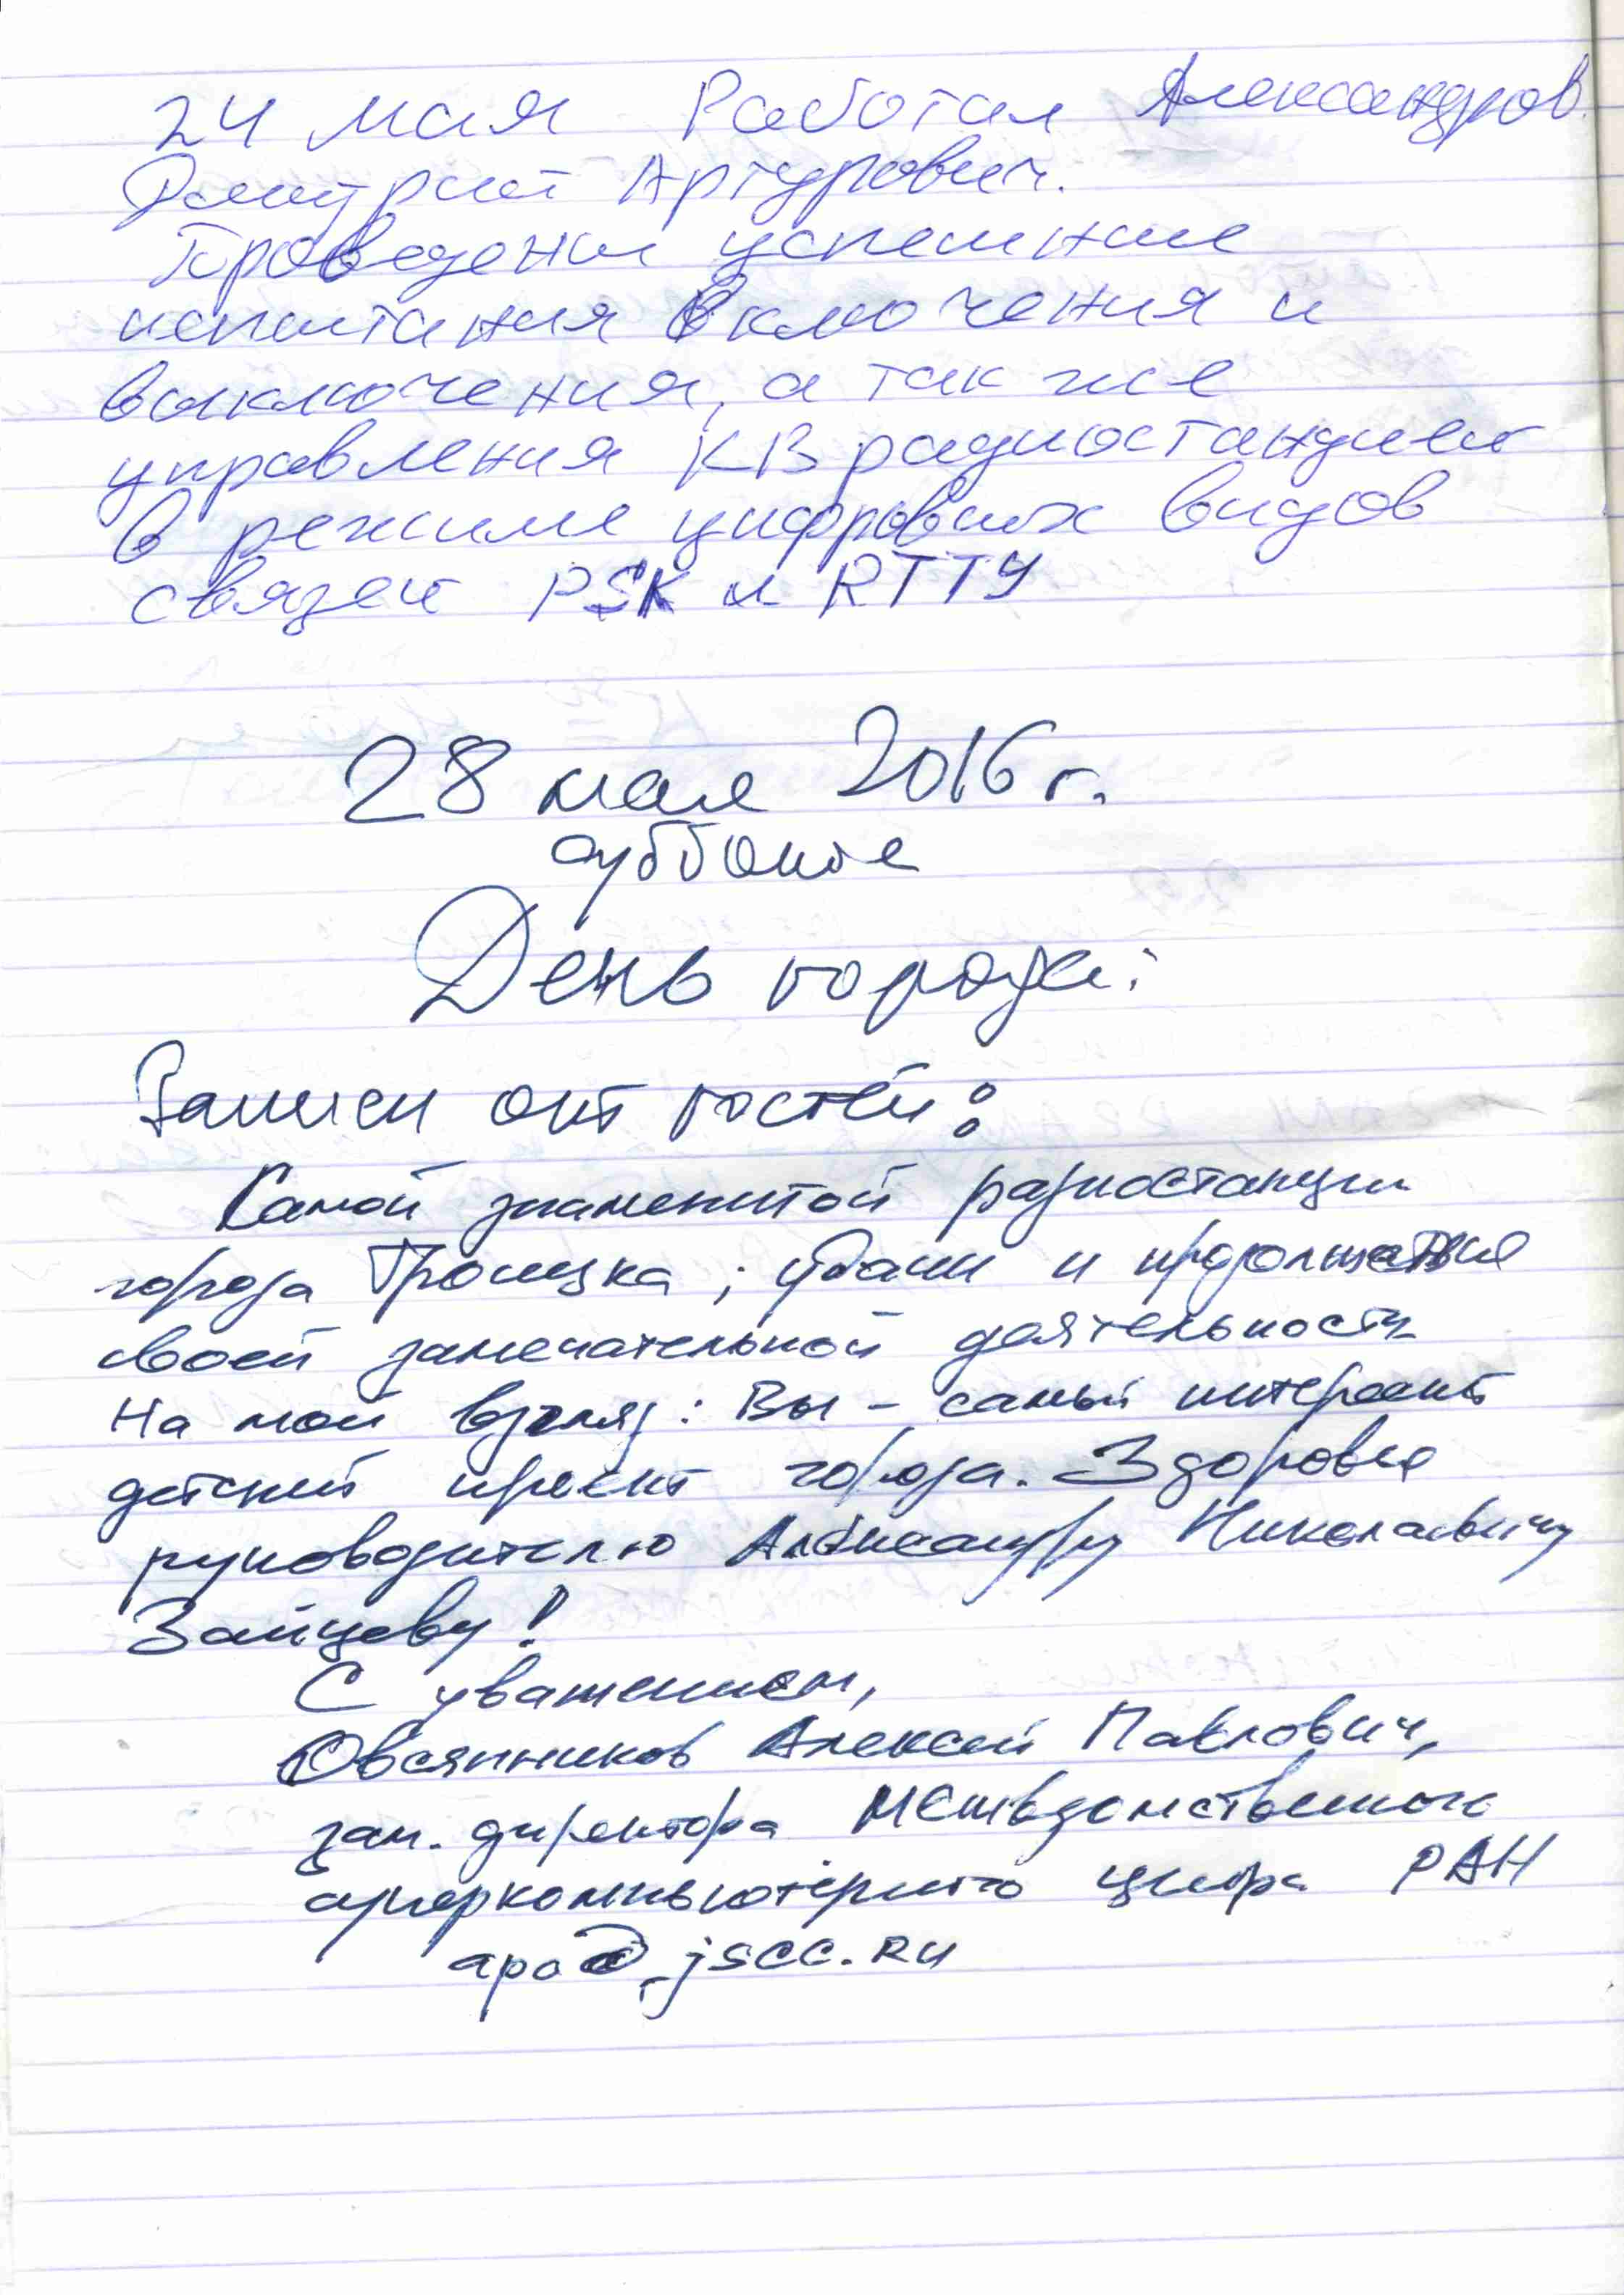 24 мая Работал Александров
Дмитрий Артурович.
Проведены успешные
испытания включения и
выключения, а так же
управления КВ радиостанцией
в режиме цифровых видов
связей PSK и RTTY
28 мая 2016 г.
суббота
День города:
Записи от гостей:
Самой знаменитой радиостанции
города Троицка; удачи и продолжения
своей замечательной деятельности
На мой взгляд: Вы - самый интересный
детский проект города. Здоровья
руководителю Александру Николаевичу
Зайцеву!
С уважением,
Овсянников Алексей Павлович,
зам. директора Межведомственного
суперкомпьютерного центра РАН
apo@jscc.ru